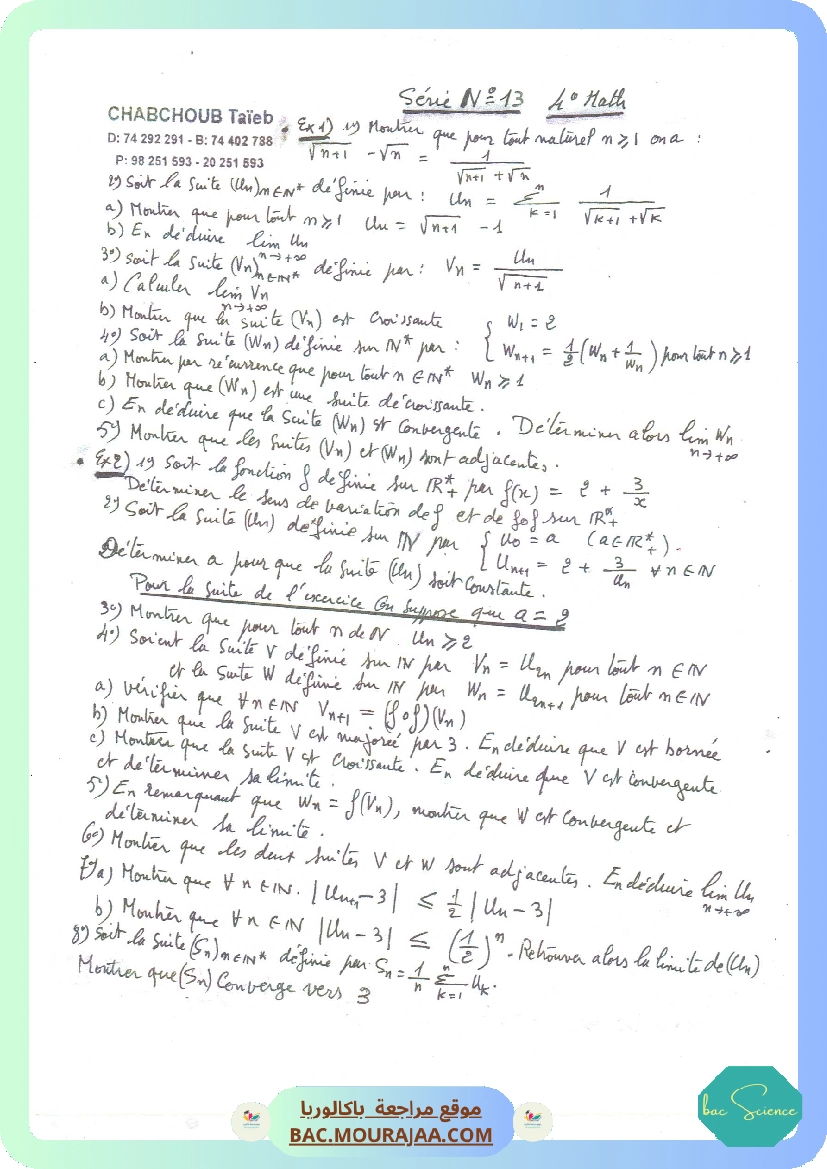 Série N° 13 4° Math
CHABCHOUB Taïeb
D: 74 292 291 - B: 74 402 788
P: 98 251 593 - 20 251 593
Ex 1) 1°) Montrer que pour tout naturel n ⩾ 1 on a :
√(n+1) - √n = 1/(√(n+1) + √n)
2°) Soit la suite (Un)n∈IN* définie par : Un = Σ(k=1 → n) 1/(√(k+1) + √k)
a) Montrer que pour tout n ⩾ 1 Un = √(n+1) - 1
b) En déduire lim Un n→+∞
3°) Soit la suite (Vn)n∈IN* définie par : Vn = Un/√(n+1)
a) Calculer lim Vn n→+∞
b) Montrer que la suite (Vn) est croissante
4°) Soit la suite (Wn) définie sur IN* par : { W1 = 2
Wn+1 = 1/2 (Wn + 1/Wn) pour tout n ⩾ 1
a) Montrer par récurrence que pour tout n ∈ IN* Wn ⩾ 1
b) Montrer que (Wn) est une suite décroissante.
c) En déduire que la suite (Wn) est convergente. Déterminer alors lim Wn n→+∞
5°) Montrer que les suites (Vn) et (Wn) sont adjacentes.
Ex 2) 1°) Soit la fonction f définie sur IR*+ par f(x) = 2 + 3/x
Déterminer le sens de variation de f et de fof sur IR*+
2°) Soit la suite (Un) définie sur IN par { U0 = a (a ∈ IR*+).
Un+1 = 2 + 3/Un ∀ n ∈ IN
Déterminer a pour que la suite (Un) soit constante.
Pour la suite de l'exercice on suppose que a = 2
3°) Montrer que pour tout n de IN Un ⩾ 2
4°) Soient la suite V définie sur IN par Vn = U2n pour tout n ∈ IN
et la suite W définie sur IN par Wn = U2n+1 pour tout n ∈ IN
a) vérifier que ∀ n ∈ IN Vn+1 = (fof)(Vn)
b) Montrer que la suite V est majorée par 3. En déduire que V est bornée
c) Montrer que la suite V est croissante. En déduire que V est convergente
et déterminer sa limite.
5°) En remarquant que Wn = f(Vn), montrer que W est convergente et
déterminer sa limite.
6°) Montrer que les deux suites V et W sont adjacentes. En déduire lim Un n→+∞
7°) a) Montrer que ∀ n ∈ IN. |Un+1 - 3| ≤ 1/2 |Un - 3|
b) Montrer que ∀ n ∈ IN |Un - 3| ≤ (1/2)^n. Retrouver alors la limite de (Un)
8°) Soit la suite (Sn)n∈IN* définie par Sn = 1/n Σ(k=1 → n) Uk.
Montrer que (Sn) converge vers 3
موقع مراجعة باكالوريا
BAC.MOURAJAA.COM
bac Science